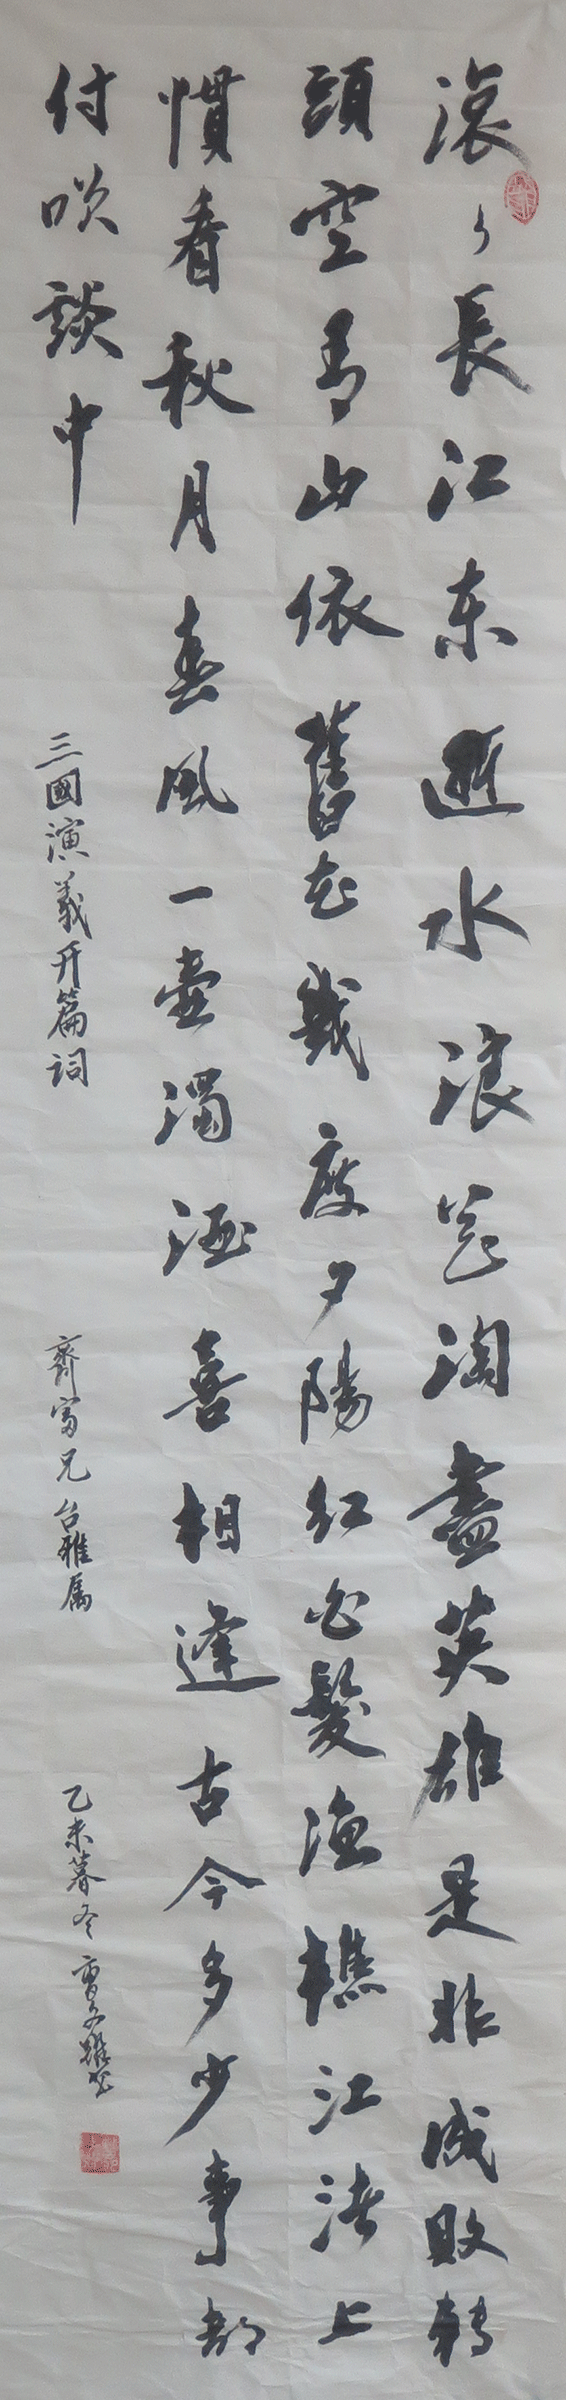 滚々長江东逝水浪花淘盡英雄是非成敗转
頭空青山依舊在幾度夕陽红白髮渔樵江渚上
慣看秋月春風一壶濁酒喜相逢古今多少事都
付笑談中
三國演義开篇词
齊富兄台雅属
乙未暮冬 曹文躍书